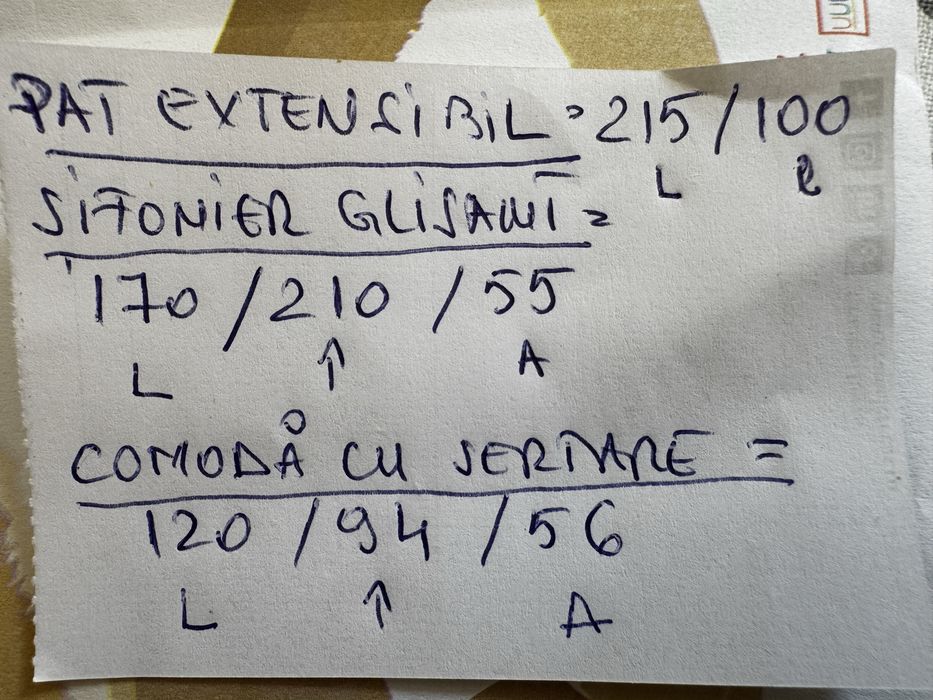 PAT EXTENSIBIL = 215 / 100
L l
SIFONIER GLISANT =
170 / 210 / 55
L ↑ A
COMODĂ CU SERTARE =
120 / 94 / 56
L ↑ A